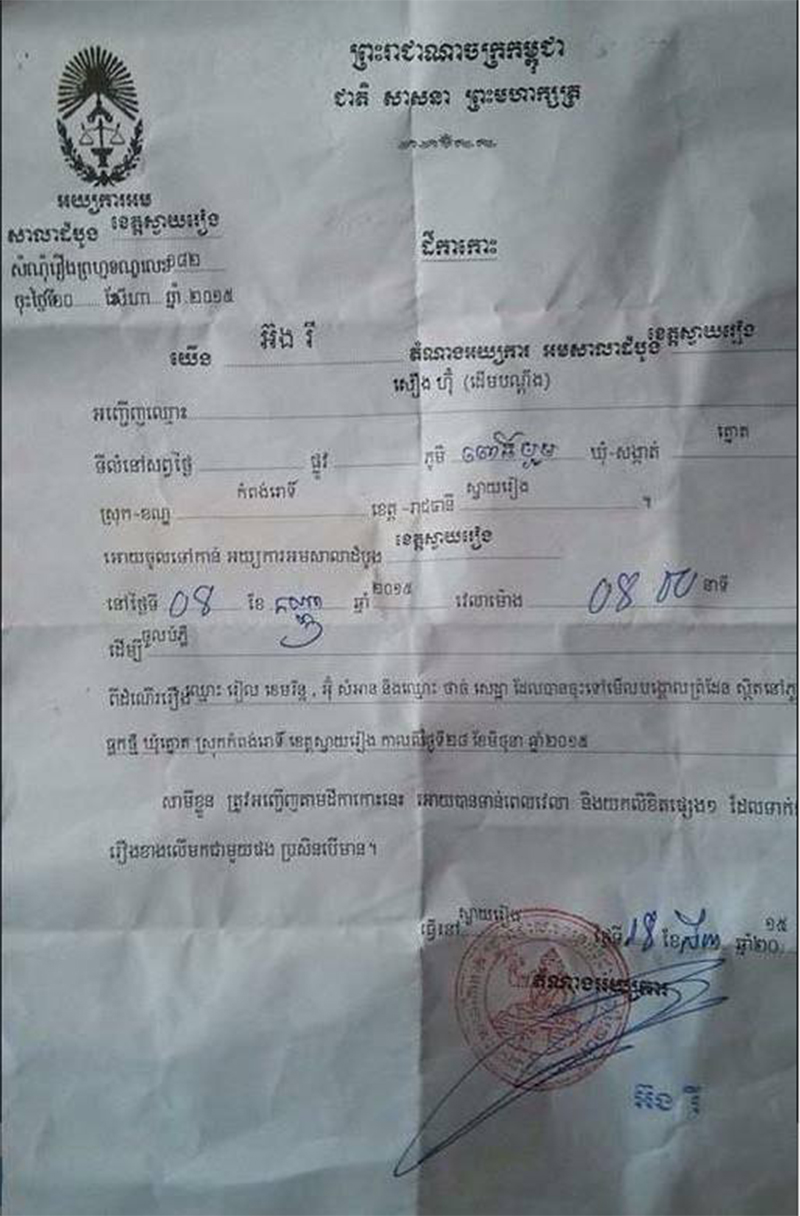 ព្រះរាជាណាចក្រកម្ពុជា
ជាតិ សាសនា ព្រះមហាក្សត្រ
អយ្យការអម
សាលាដំបូង ខេត្តស្វាយរៀង
សំណុំរឿងព្រហ្មទណ្ឌលេខ ១៨២
ចុះថ្ងៃទី២០ ខែសីហា ឆ្នាំ ២០១៥
ដីកាកោះ
យើង អ៊ុង រី តំណាងអយ្យការ អមសាលាដំបូង ខេត្តស្វាយរៀង
អញ្ជើញឈ្មោះ សឿង ហ៊ុំ (ដើមបណ្តឹង)
ទីលំនៅសព្វថ្ងៃ ផ្លូវ ភូមិ ឃុំ-សង្កាត់ ត្នោត
ស្រុក-ខណ្ឌ កំពង់រោទិ៍ ខេត្ត -រាជធានី ស្វាយរៀង ។
អោយចូលទៅកាន់ អយ្យការអមសាលាដំបូង ខេត្តស្វាយរៀង
នៅថ្ងៃទី 08 ខែ កញ្ញា ឆ្នាំ ២០១៥ វេលាម៉ោង 08 00 នាទី
ដើម្បី ចូលបំភ្លឺ
ពីដំណើររឿង ឈ្មោះ រៀល ខេមរិន្ទ , អ៊ុំ សំអាន និងឈ្មោះ ថាច់ សេដ្ឋា ដែលបានចុះទៅមើលបង្គោលព្រំដែន ស្ថិតនៅភូ
ធ្លកថ្មី ឃុំត្នោត ស្រុកកំពង់រោទិ៍ ខេត្តស្វាយរៀង កាលពីថ្ងៃទី២៨ ខែមិថុនា ឆ្នាំ២០១៥
សាមីខ្លួន ត្រូវអញ្ជើញតាមដីកាកោះនេះ អោយបានទាន់ពេលវេលា និងយកលិខិតផ្សេងៗ ដែលទាក់
រឿងខាងលើមកជាមួយផង ប្រសិនបើមាន។
ធ្វើនៅ ស្វាយរៀង ថ្ងៃទី ខែ សីហា ឆ្នាំ២០ ១៥
តំណាងអយ្យការ
អ៊ុង រី